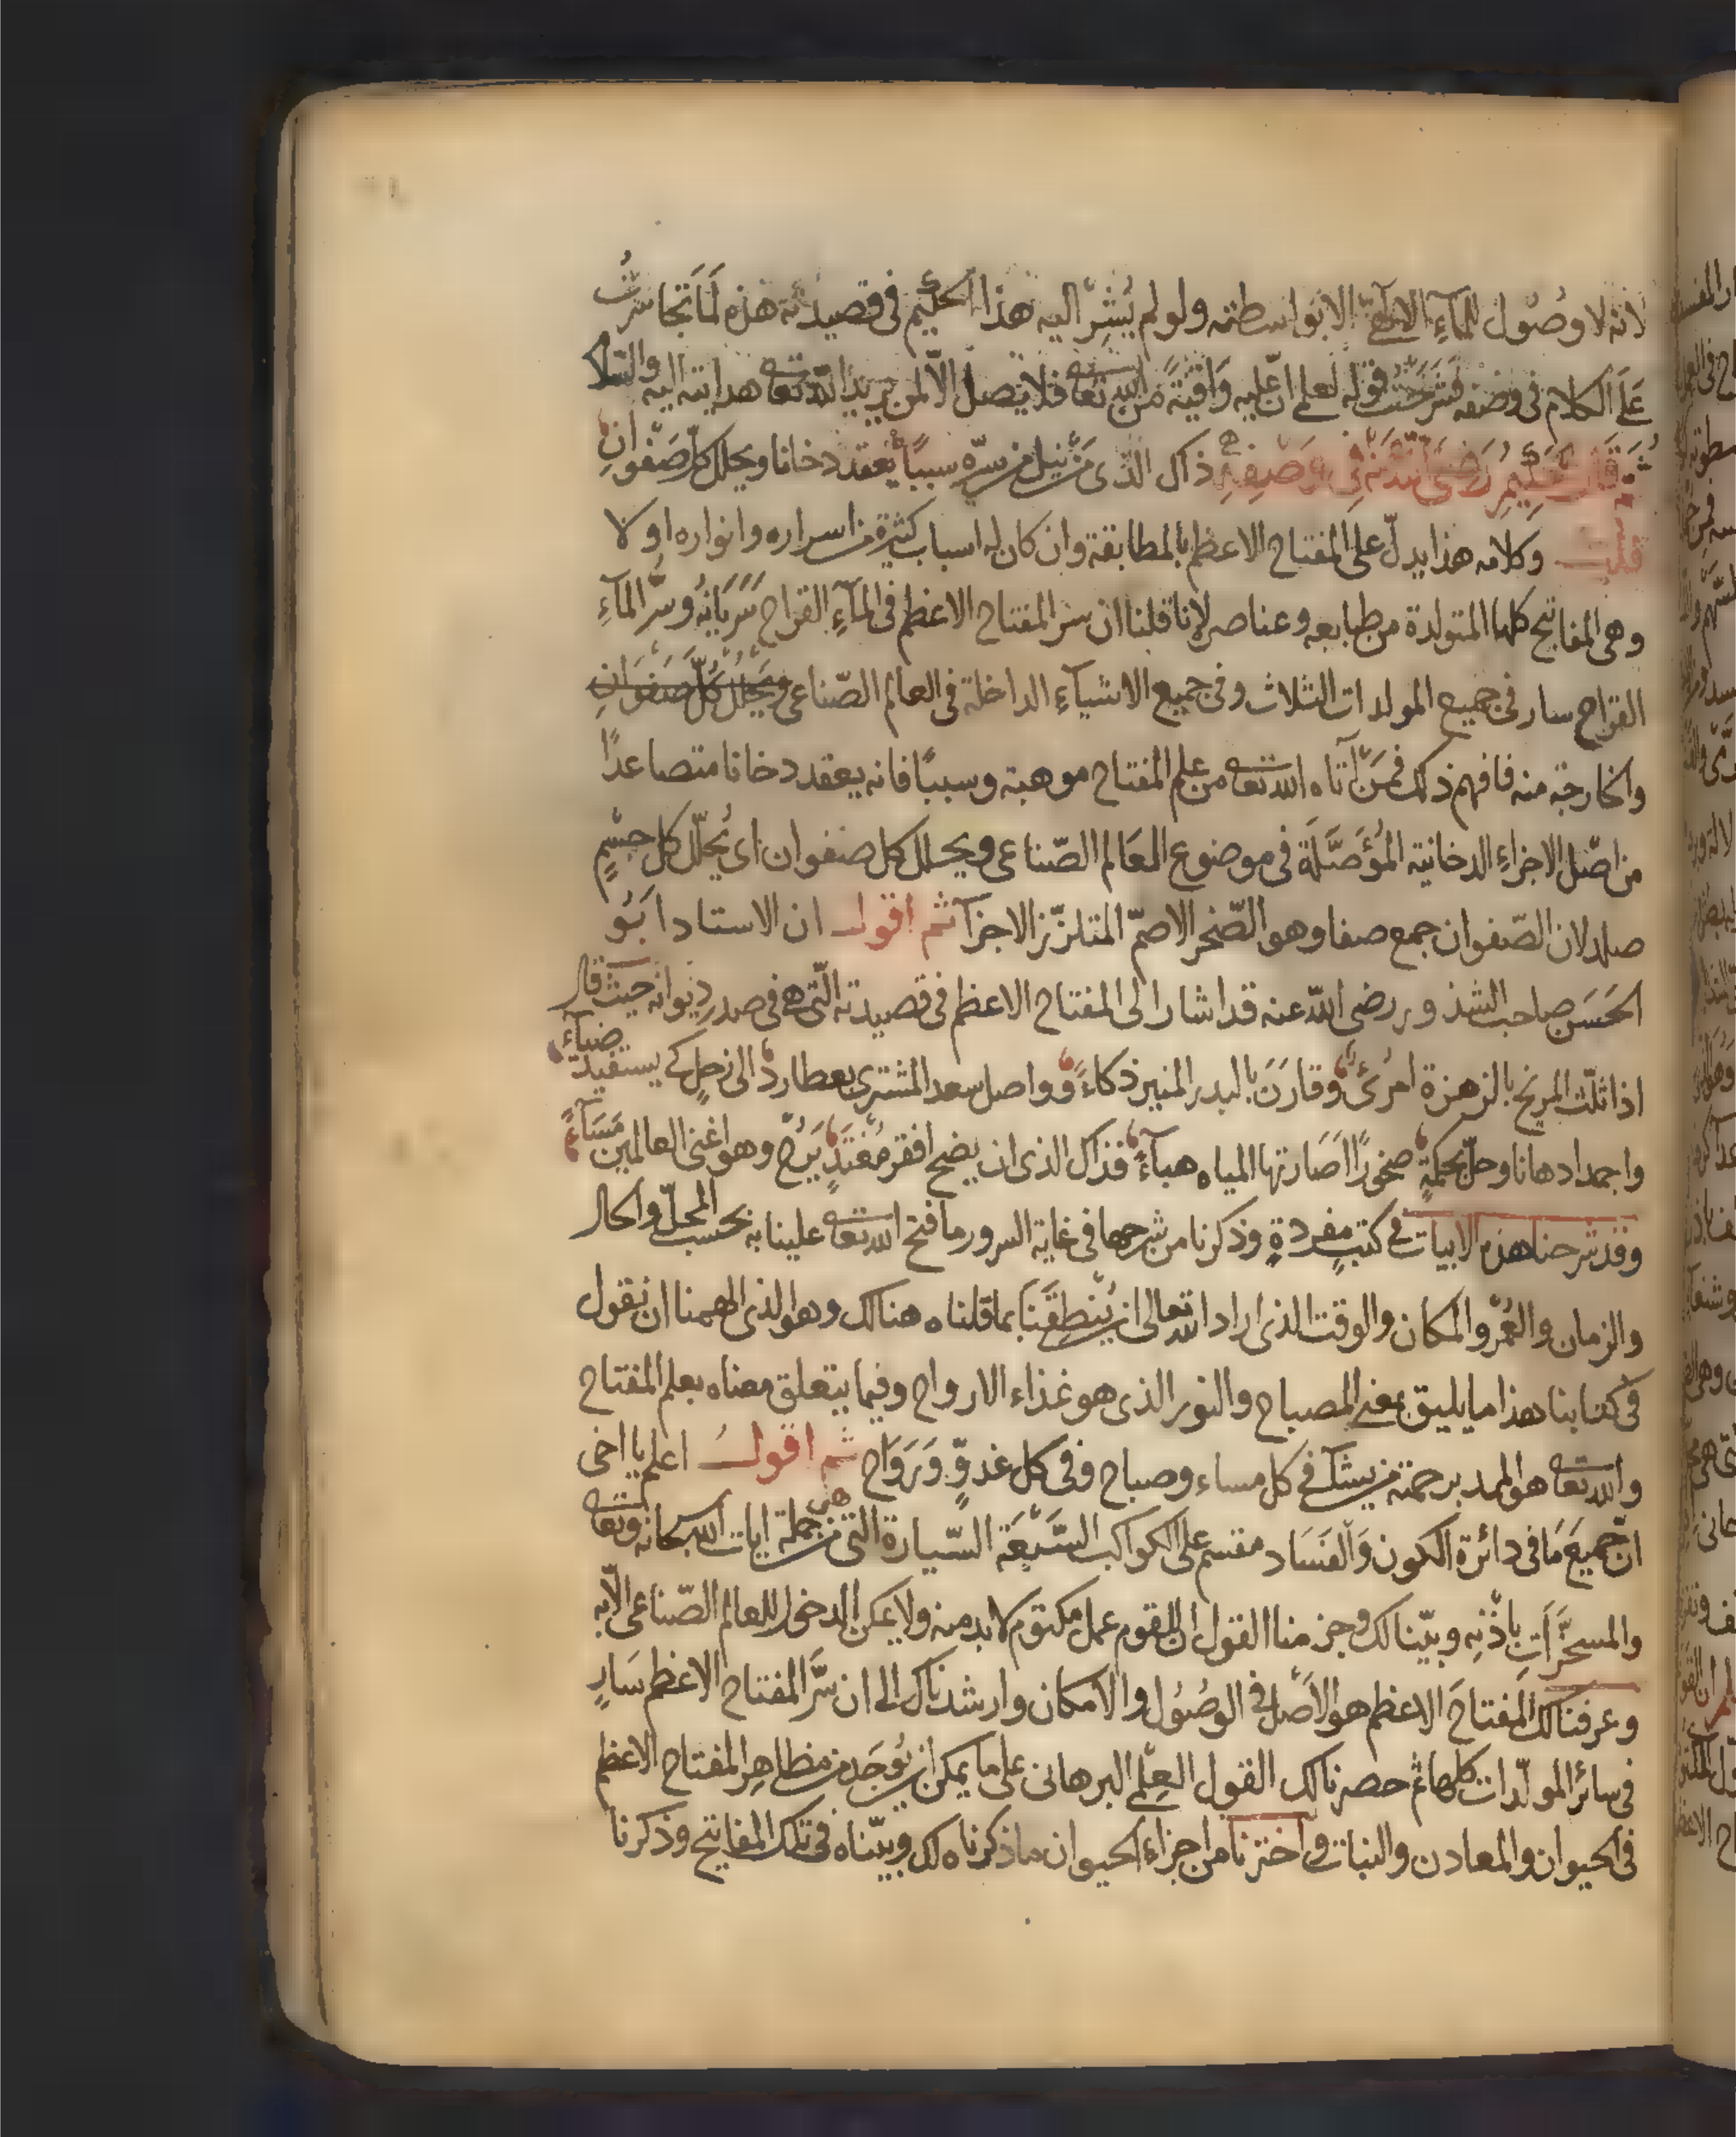 لانه لا وصُول للماءِ الالهىّ الا بواسطته ولو لم يُشِرّ اليه هذا الحكيم فى قصيدته هذه لَمَا تجاسرتُ
عَلَى الكلام فى وصفه فشرحتُ قوله لعلمى انّ عليه وَاقيَةً من الله تعا فلا يصل الّا لمن يريد الله تعا هدايته اليه والسلام
ثم قال الحكيم رَضى الله عَنه فِى وصفِهِ ذاك الذى مَنْ نيل من سرّه سببًا يعقد دخانا ويحلل كلّ صَفْوانِ
قلت وكلامه هذا يدلّ على المفتاح الاعظم بالمطابقة وان كان له اسباب كثيرة من اسراره وانواره اولا
وهى المفاتيح كلها المتولدة من طبايعه وعناصره لانا قلنا ان سر المفتاح الاعظم فى المآءِ القراح سَرَيَانُه وسرُّ المآءِ
القراح سار فى جميع المولدات الثلاث وفى جميع الاشيآءِ الداخلة فى العالم الصّناعى ويحلل كلّ صَفوَانِ
والخارجة منه فافهم ذلك فمَنْ آتاه الله تعا من علم المفتاح موهبة وسببًا فانه يعقد دخانا متصاعدًا
من اصْل الاجزاءِ الدخانية المُؤَصَّلَة فى موضوع العَالم الصّناعى ويحلل كل صفوان اى يُحلّل كل جسْمٍ
صلد لان الصّفوان جمع صفا وهو الصّخر الاصمّ المتلزّز الاجزآ ثم اقول ان الاستاد ابُو
الحَسَن صاحب الشذور رضى الله عنه قد اشار الى المفتاح الاعظم فى قصيدته الّتى هى فى صدر دِيوانه حيث قال
اذا ثلّث المريخ بالزهرة امرئ وقارَنَ بالبدر المنير ذكاءً وواصل سعد المشترى بعطارد الى زحل كى يستفيد ضياءً
واجمد ادهانا وحلّ بحكمةٍ صخورًا اَصَارتها المياه هبآءً فذاك الذى ان يضح افقر مُغْتَدٍ يَرُحْ وهو اغنى العالمين مَسَآءً
وقد شرحنا هذه الابيات فى كتبٍ مفردةٍ وذكرنا من شرحها فى غاية السرور ما فتح الله تعا علينا به بحسب المحلّ والحال
والزمان والعُمْر والمكان والوقت الذى اراد الله تعالى ان يُنطقنَا بما قلناه هنالك وهو الذى الهمنا ان نقول
فى كتابنا هذا ما يليق بمعنى المصباح والنور الذى هو غذاء الارواح وفيما يتعلق معناه بعلم المفتاح
والله تعا هو الممد برحمته من يشآ فى كل مساء وصباح وفى كل غدوٍّ وَرَوَاح ثم اقول اعلم يا اخى
انّ جميعَ مَا فى دائرة الكون وَالفَسَاد مقسم على الكواكب السَّبْعَة السّيارة التى هى من جملة ايات الله سبحانه وتعا
والمسخّرَاتِ باذْنِه وبيّنا لك وجزمنا القول ان للقوم عمل مكتوم لابد منه ولا يمكن الدخول للعالم الصّناعى الّا به
وعرفنا لك المفتاحَ الاعظم هو الاصْل فى الوصُول والامكان وارشدناك الى ان سّرَّ المفتاح الاعظم سَارٍ
فى سائر المولّدات كلها ثم حصرنا لك القول العِلمى البرهانى على ما يمكن ان يُوجَد من مظاهرِ المفتاح الاعظم
فى الحيوان والمعادن والنبات واخترنا من اجزاءِ الحيوان ما ذكرناه لك وبيّناه فى تلك المفاتيح وذكرنا